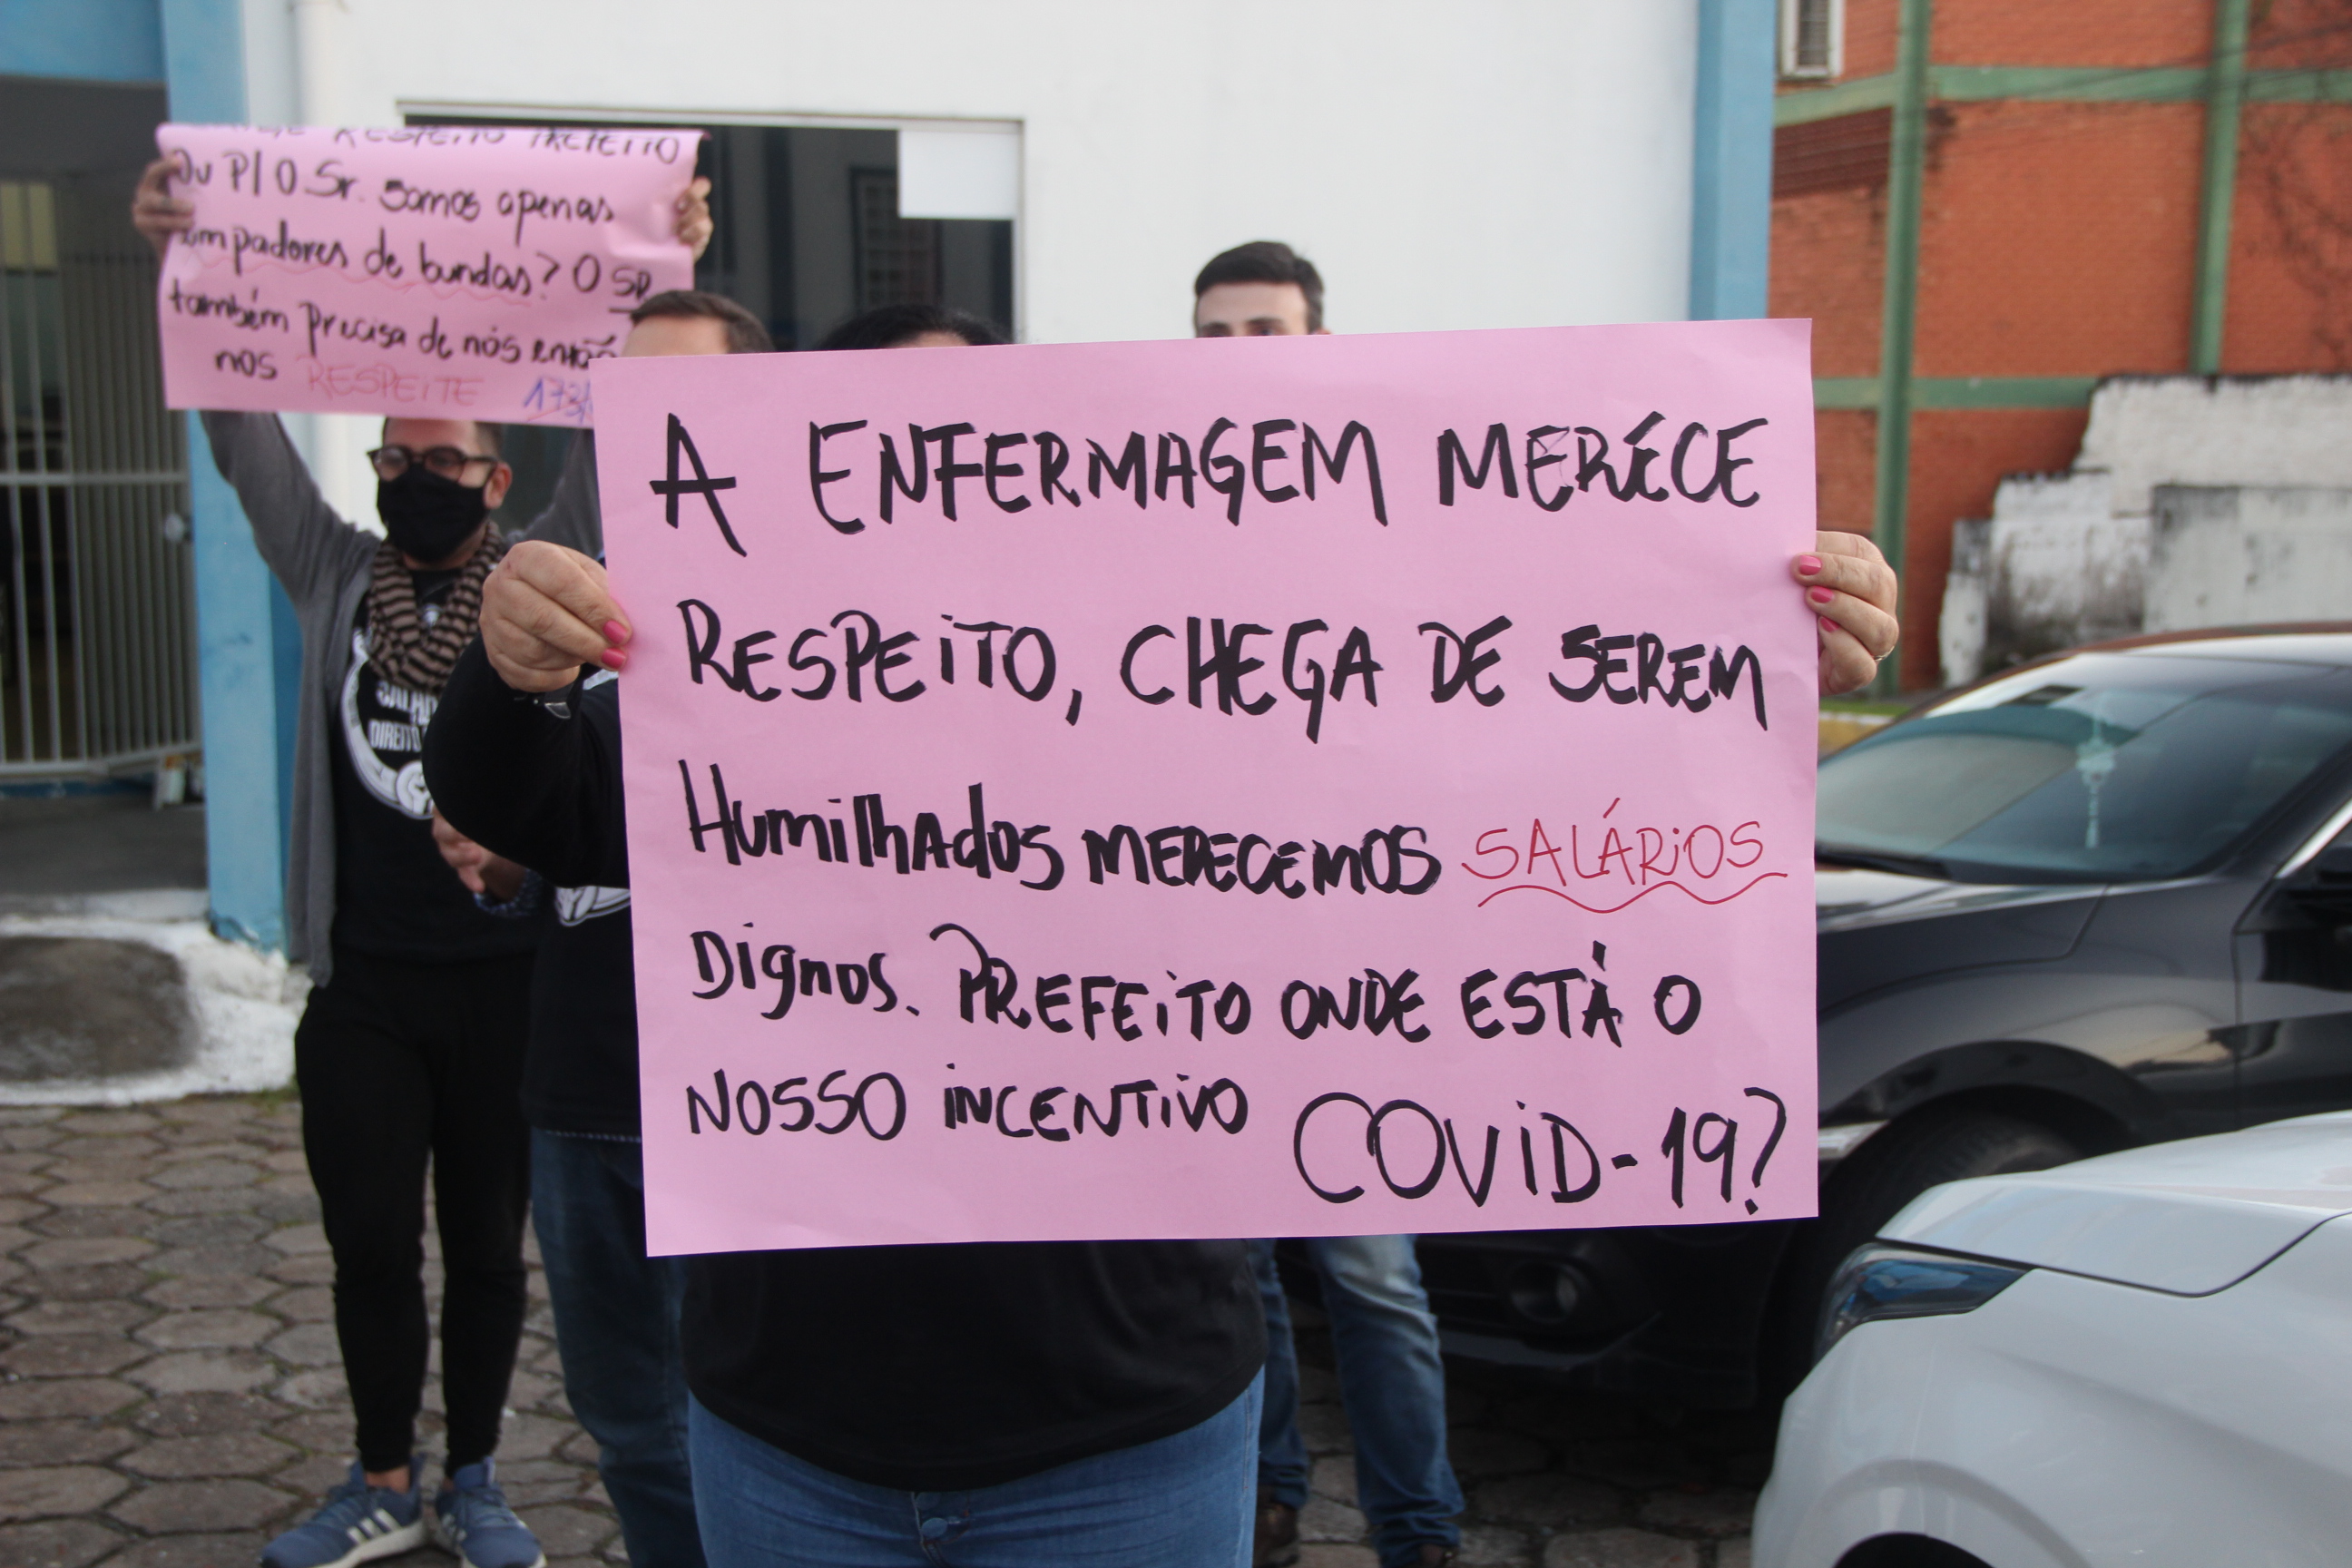 RESPEITO PREFEITO
Ou P/ O Sr. somos apenas
limpadores de bundas? O SR
também precisa de nós então
nos RESPEITE
A ENFERMAGEM MERÉCE
RESPEITO, CHEGA DE SEREM
HumilhAdos MERECEMOS SALÁRIOS
Dignos. PREFEITO ONDE ESTÁ O
NOSSO INCENTIVO COVID-19?
DIREITO